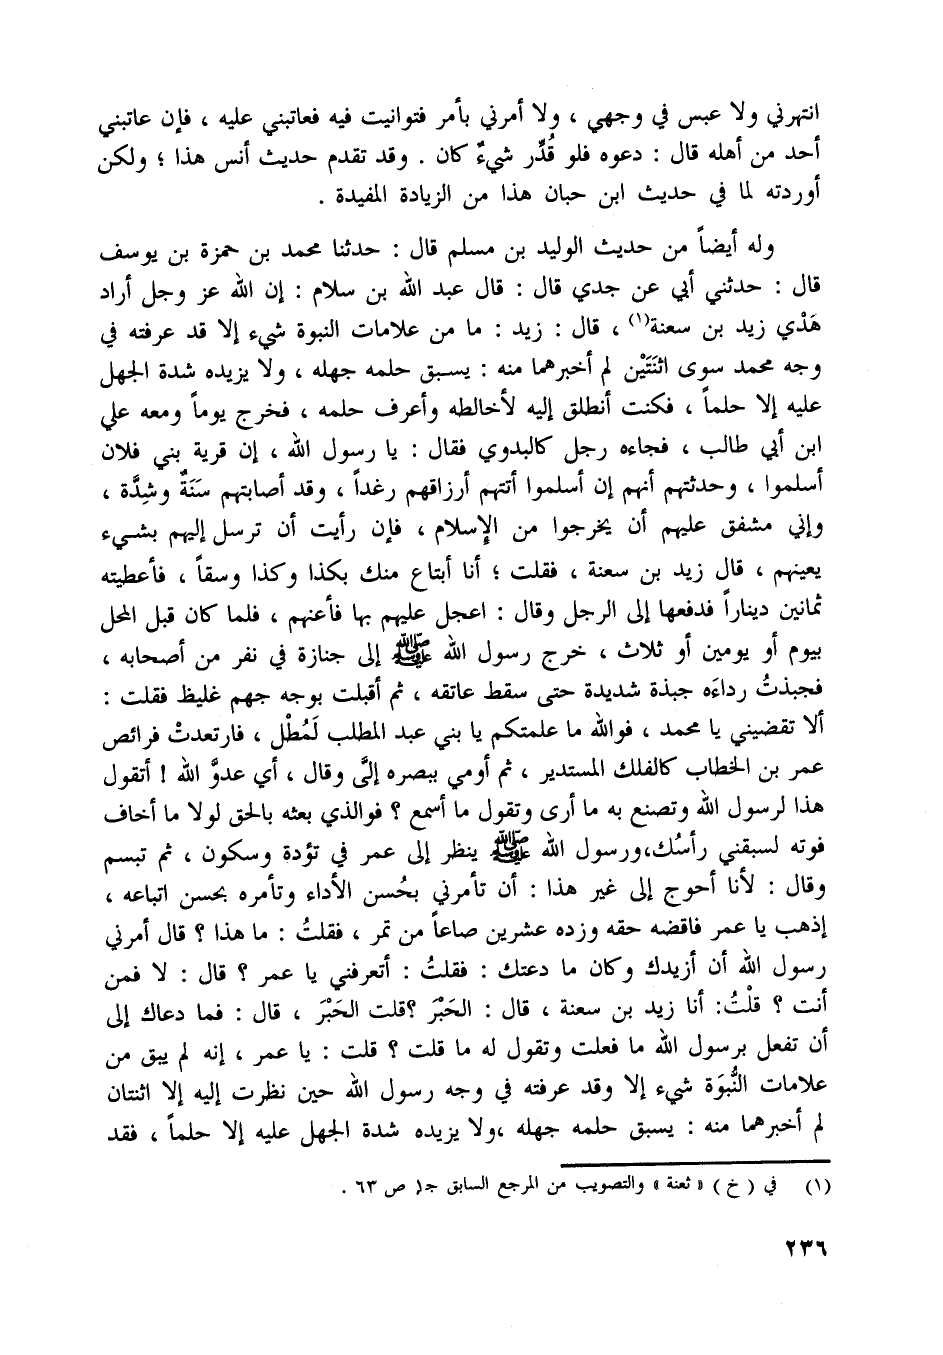 انتهرني ولا عبس في وجهي ، ولا أمرني بأمر فتوانيت فيه فعاتبني عليه ، فإن عاتبني
أحد من أهله قال : دعوه فلو قُدِّر شيءٌ كان . وقد تقدم حديث أنس هذا ؛ ولكن
أوردته لما في حديث ابن حبان هذا من الزيادة المفيدة .
وله أيضاً من حديث الوليد بن مسلم قال : حدثنا محمد بن حمزة بن يوسف
قال : حدثني أبي عن جدي قال : قال عبد الله بن سلام : إن الله عز وجل أراد
هَدْي زيد بن سعنة(١) ، قال : زيد : ما من علامات النبوة شيء إلا قد عرفته في
وجه محمد سوى اثنَتَيْن لم أخبرهما منه : يسبق حلمه جهله ، ولا يزيده شدة الجهل
عليه إلا حلماً ، فكنت أنطلق إليه لأخالطه وأعرف حلمه ، فخرج يوماً ومعه علي
ابن أبي طالب ، فجاءه رجل كالبدوي فقال : يا رسول الله ، إن قرية بني فلان
أسلموا ، وحدثتهم أنهم إن أسلموا أتتهم أرزاقهم رغداً ، وقد أصابتهم سَنَةٌ وشِدَّة ،
وإني مشفق عليهم أن يخرجوا من الإسلام ، فإن رأيت أن ترسل إليهم بشيء
يعينهم ، قال زيد بن سعنة ، فقلت ؛ أنا أبتاع منك بكذا وكذا وسقاً ، فأعطيته
ثمانين ديناراً فدفعها إلى الرجل وقال : اعجل عليهم بها فأعنهم ، فلما كان قبل المحل
بيوم أو يومين أو ثلاث ، خرج رسول الله ﷺ إلى جنازة في نفر من أصحابه ،
فجبذتُ رداءَه جبذة شديدة حتى سقط عاتقه ، ثم أقبلت بوجه جهم غليظ فقلت :
ألا تقضيني يا محمد ، فوالله ما علمتكم يا بني عبد المطلب لَمُطْل ، فارتعدتْ فرائص
عمر بن الخطاب كالفلك المستدير ، ثم أومي ببصره إليَّ وقال ، أي عدوَّ الله ! أتقول
هذا لرسول الله وتصنع به ما أرى وتقول ما أسمع ؟ فوالذي بعثه بالحق لولا ما أخاف
فوته لسبقني رأسُك،ورسول الله ﷺ ينظر إلى عمر في تؤدة وسكون ، ثم تبسم
وقال : لأنا أحوج إلى غير هذا : أن تأمرني بحُسن الأداء وتأمره بحسن اتباعه ،
إذهب يا عمر فاقضه حقه وزده عشرين صاعاً من تمر ، فقلتُ : ما هذا ؟ قال أمرني
رسول الله أن أزيدك وكان ما دعتك : فقلتُ : أتعرفني يا عمر ؟ قال : لا فمن
أنت ؟ قلْتُ: أنا زيد بن سعنة ، قال : الحَبْرَ ؟قلت الحَبْرَ ، قال : فما دعاك إلى
أن تفعل برسول الله ما فعلت وتقول له ما قلت ؟ قلت : يا عمر ، إنه لم يبق من
علامات النُّبوَة شيء إلا وقد عرفته في وجه رسول الله حين نظرت إليه إلا اثنتان
لم أخبرهما منه : يسبق حلمه جهله ،ولا يزيده شدة الجهل عليه إلا حلماً ، فقد
(١) في ( خ ) « ثعنة » والتصويب من المرجع السابق جـ١ ص ٦٣ .
٢٣٦